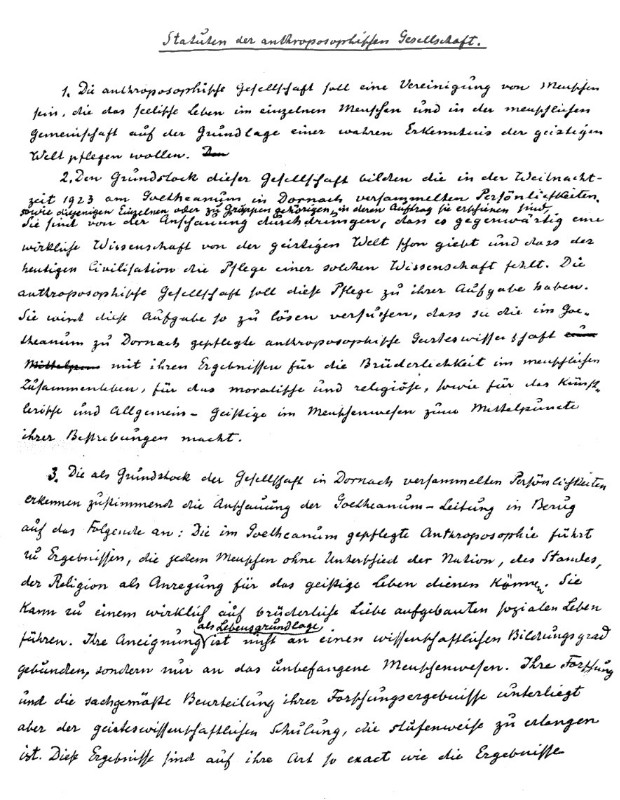 Statuten der anthroposophischen Gesellschaft.
1. Die anthroposophische Gesellschaft soll eine Vereinigung von Menschen
sein, die das seelische Leben im einzelnen Menschen und in der menschlichen
Gemeinschaft auf der Grundlage einer wahren Erkenntnis der geistigen
Welt pflegen wollen. Den
2. Den Grundstock dieser Gesellschaft bilden die in der Weihnacht-
zeit 1923 am Goetheanum in Dornach versammelten Persönlichkeiten,
sowie diejenigen Einzelnen oder zu Gruppen gehörigen, in deren Auftrag sie erschienen sind.
Sie sind von der Anschauung durchdrungen, dass es gegenwärtig eine
wirkliche Wissenschaft von der geistigen Welt schon giebt und dass der
heutigen Civilisation die Pflege einer solchen Wissenschaft fehlt. Die
anthroposophische Gesellschaft soll diese Pflege zu ihrer Aufgabe haben.
Sie wird diese Aufgabe so zu lösen versuchen, dass sie die im Goe-
theanum zu Dornach gepflegte anthroposophische Geisteswissenschaft
Mittelpun mit ihren Ergebnissen für die Brüderlichkeit im menschlichen
Zusammenleben, für das moralische und religiöse, sowie für das künst-
lerische und Allgemein-Geistige im Menschenwesen zum Mittelpuncte
ihrer Bestrebungen macht.
3. Die als Grundstock der Gesellschaft in Dornach versammelten Persönlichkeiten
erkennen zustimmend die Anschauung der Goetheanum-Leitung in Bezug
auf das Folgende an: Die im Goetheanum gepflegte Anthroposophie führt
zu Ergebnissen, die jedem Menschen ohne Unterschied der Nation, des Standes,
der Religion als Anregung für das geistige Leben dienen können. Sie
kann zu einem wirklich auf brüderliche Liebe aufgebauten sozialen Leben
führen. Ihre Aneignung als Lebensgrundlage ist nicht an einen wissenschaftlichen Bildungsgrad
gebunden, sondern nur an das unbefangene Menschenwesen. Ihre Forschung
und die sachgemäße Beurteilung ihrer Forschungsergebnisse unterliegt
aber der geisteswissenschaftlichen Schulung, die stufenweise zu erlangen
ist. Diese Ergebnisse sind auf ihre Art so exact wie die Ergebnisse